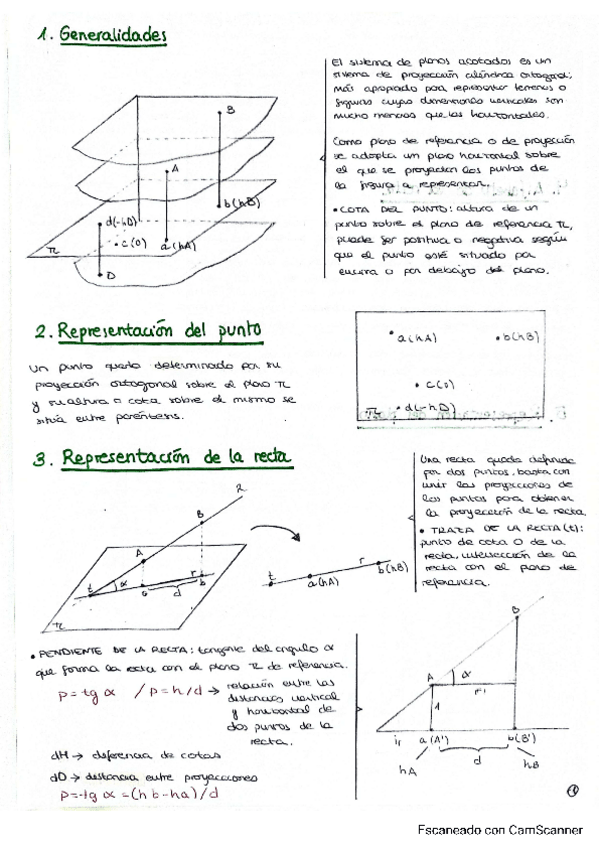 1. Generalidades
El sistema de planos acotados es un
sistema de proyección cilíndrica ortogonal;
más apropiado para representar terrenos o
figuras cuyas dimensiones verticales son
mucho menores que las horizontales.
Como plano de referencia o de proyección
se adopta un plano horizontal sobre
el que se proyectan los puntos de
la figura a representar.
• COTA DEL PUNTO: altura de un
punto sobre el plano de referencia π,
puede ser positiva o negativa según
que el punto esté situado por
encima o por debajo del plano.
B
A
b(hB)
d(-hD)
c(0)
a(hA)
π
D
2. Representación del punto
un punto queda determinado por su
proyección ortogonal sobre el plano π
y su altura o cota sobre el mismo se
sitúa entre paréntesis.
a(hA)
b(hB)
c(0)
d(-hD)
π
3. Representación de la recta
Una recta queda definida
por dos puntos, basta con
unir las proyecciones de
los puntos para obtener
la proyección de la recta.
• TRAZA DE LA RECTA (t):
punto de cota 0 de la
recta, intersección de la
recta con el plano de
referencia.
R
B
A
t
α
r
a
d
b
π
t
a(hA)
r
b(hB)
• PENDIENTE DE LA RECTA: tangente del angulo α
que forma la recta con el plano π de referencia.
P = tg α / P = h/d → relación entre las
distancias vertical
y horizontal de
dos puntos de la
recta.
dH → diferencia de cotas
dD → distancia entre proyecciones
P = tg α = (hb - ha)/d
B
A
α
1
a(A')
b(B')
d
hA
hB
Escaneado con CamScanner